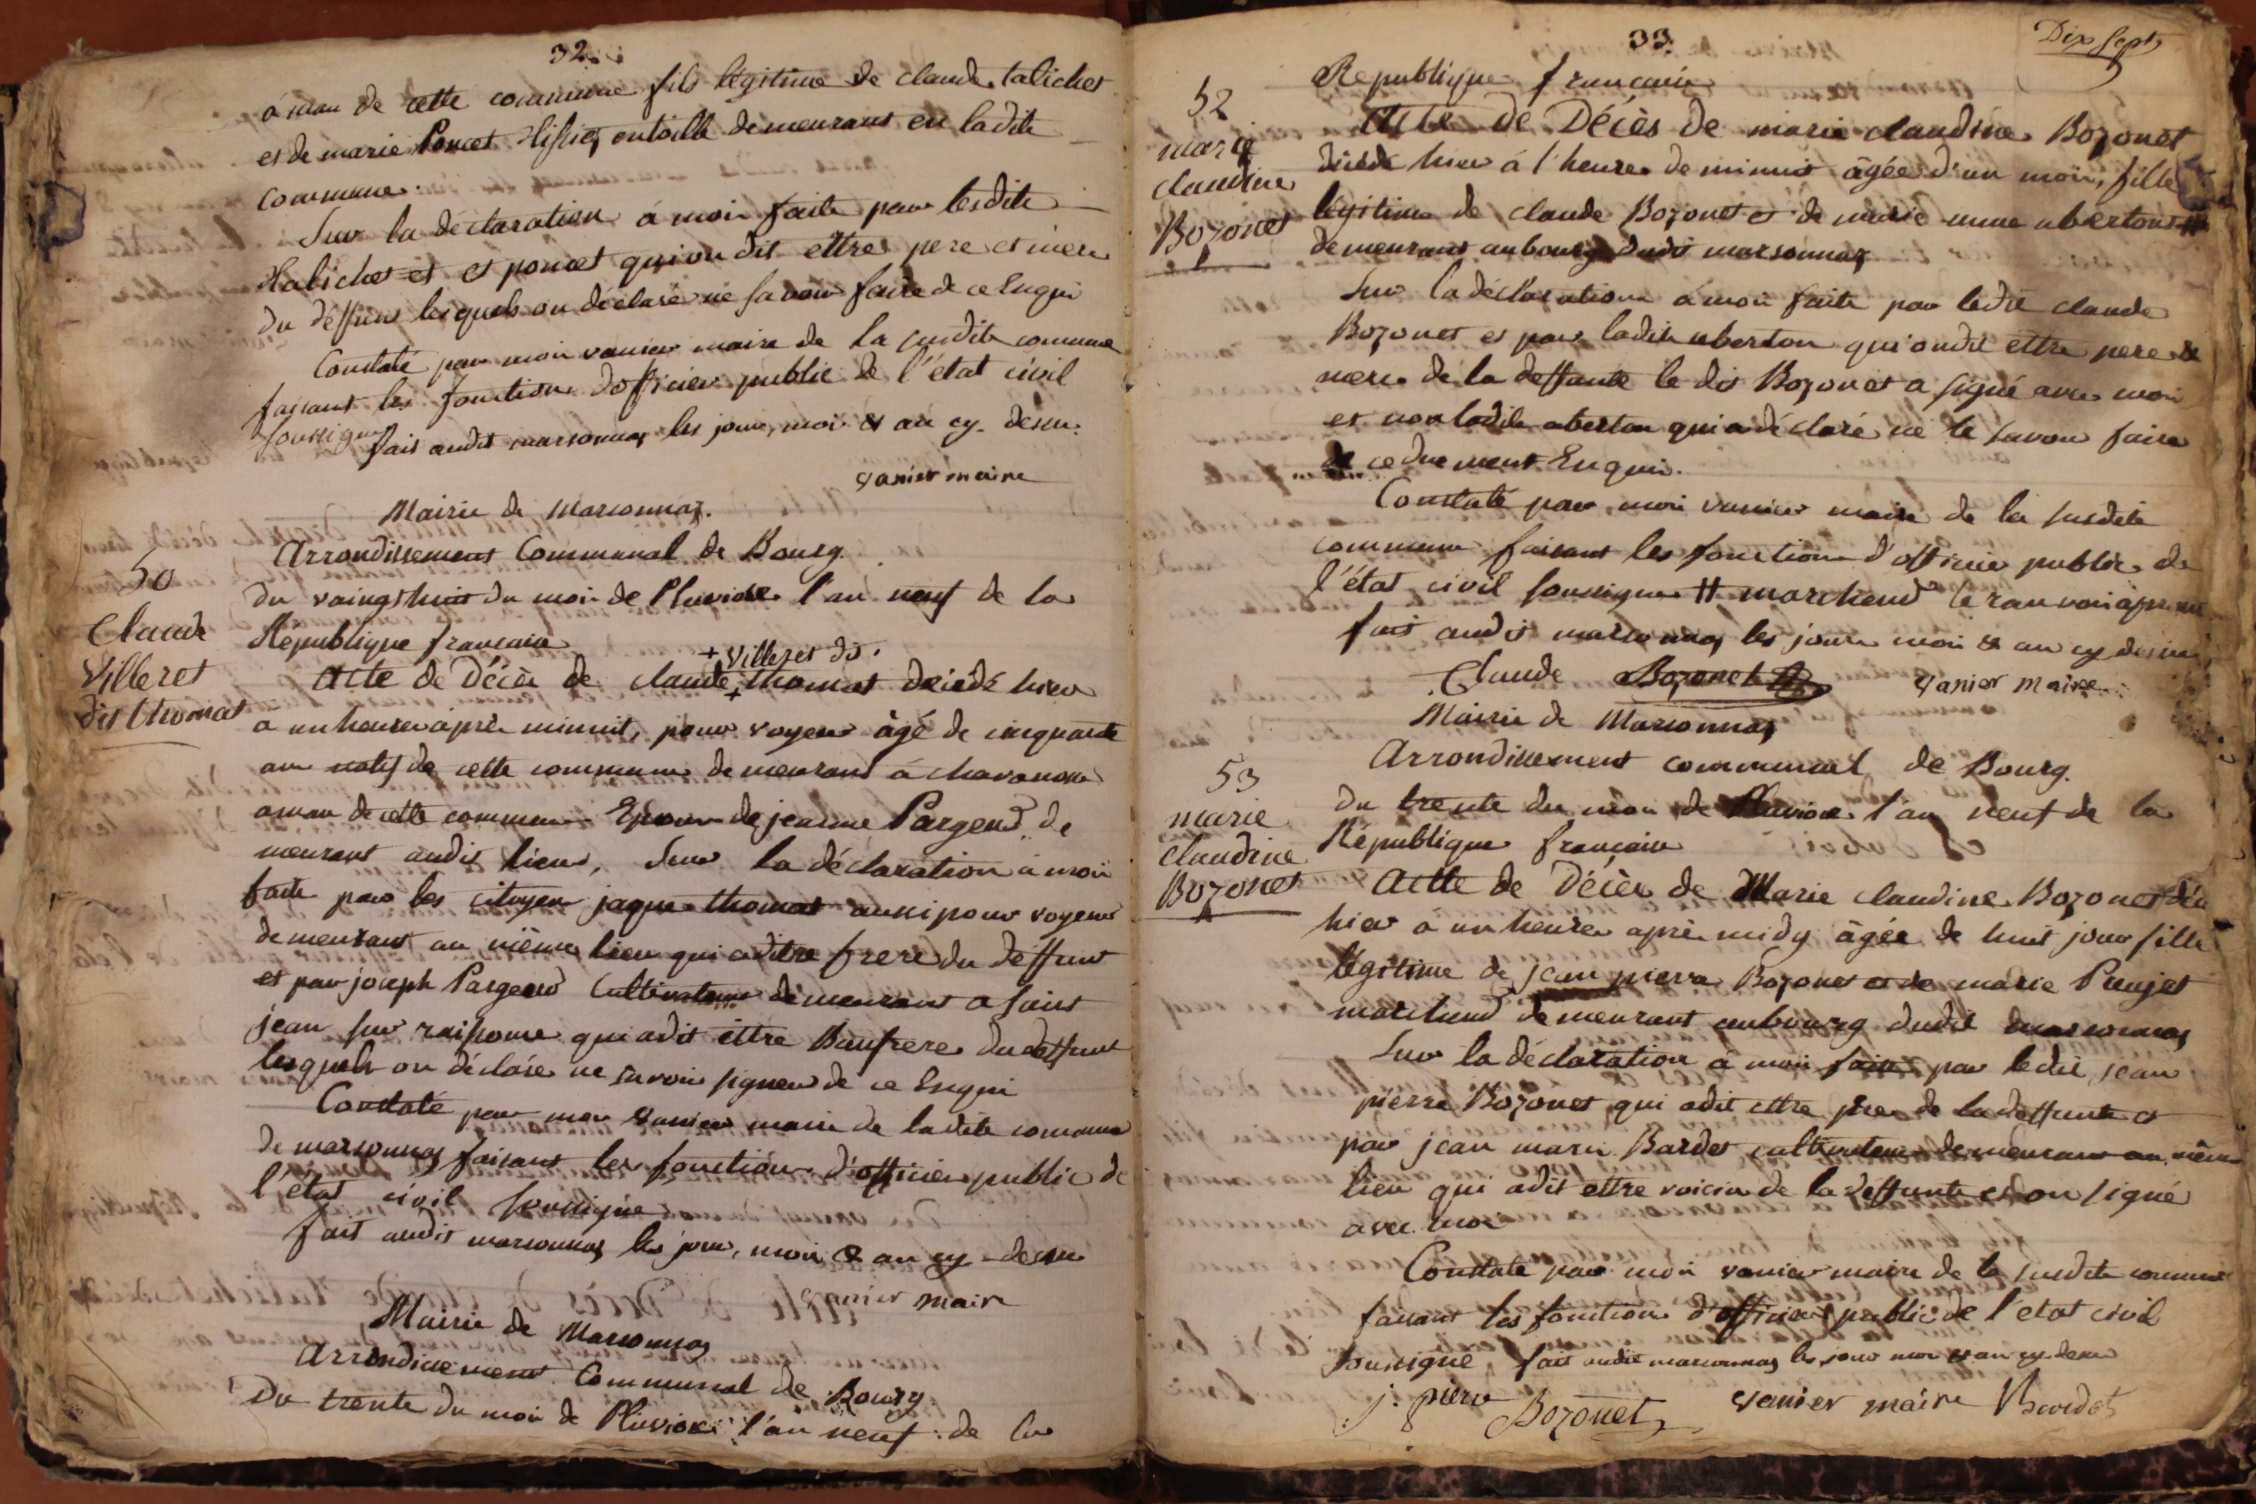 32
á man de cette commune fils légitime de claude taliches
et de marie Poncet tissier en toille demeurans en ladite
commune.
Sur la déclaration á moi faite par lesdits
taliches et et poncet qui on dit ettre pere et mere
du déffunt lesquels on déclaré ne savoir faire de ce Enqui
Constaté par moi vanier maire de la susdite commune
faisant les fonction d'officier public de l'état civil
soussigné
fait audit marsonnas les jour, moi & an cy-dessu.
vanier maire
Mairie de Marsonnas.
Arrondissement Communal de Bourg.
50
Claude
Villeret
dit thomas
Du vaingt huit du moi de Pluviose l'an neuf de la
République francaise
+ Villeret dit.
Acte de Décès de claude + thomas décédé hier
a un heure après minuit, pour voyeur âgé de cinquante
ans natif de cette commune demeurant á chavanosse
aman de cette commune Epoux de jeanne Pargeud de
meurant audit lieu, Sur la déclaration á moi
faite par les citoyen jaque thomas aussi pour voyeur
demeurant au même lieu qui a dit etre frere du déffunt
et par joseph Pargeud Cultivateur demeurant a saint
jean sur raissouse qui a dit ettre Baufrere du deffunt
lesquels on déclaré ne savoir signer de ce Enqui
Constaté par moi vanier maire de ladite commune
de marsonnas faisant les fonction d'officier public de
l'état civil soussigné
fait audit marsonnas les jour, moi & an cy-dessu
vanier maire
Mairie de Marsonnas
Arrondissement Communal de Bourg
Du trente du moi de Pluviose l'an neuf de la
33
Dix sept
République francaise
52
marie
claudine
Bozonet
Acte de Décès de marie claudine Bozonet
décédé hier á l'heure de minuit âgée d'un moi, fille
légitime de claude Bozonet et de marie anne aberton #
demeurant au bourg dudit marsonnas
Sur la déclaration á moi faite par ledit claude
Bozonet et par ladite aberton qui on dit ettre pere &
mere de la deffunte le dit Bozonet a signé avec moi
et non ladite aberton qui a déclaré ne le savoir faire
de ce duement Enqui.
Constaté par moi vanier maire de la susdite
commune faisant les fonction d'officier public de
l'état civil soussigné # marchand le ranvoi áprouvé
fait audit marsonnas les jour moi & an cy dessu
Claude Bozonet vanier maire
Mairie de Marsonnas
Arrondissement communal de Bourg.
53
marie
claudine
Bozonet
Du trente du moi de Pluviose l'an neuf de la
République francaise
Actte de Décès de Marie claudine Bozonet déc
hier á un heure après midy âgée de huit jour fille
légitime de jean pierre Bozonet et de marie Penjet
marchand demeurant au bourg dudit marsonnas
Sur la déclaration á moi faite par ledit jean
pierre Bozonet qui a dit ettre pere de la deffunte et
par jean marie Bardet cultivateur demeurant au même
lieu qui a dit ettre voicin de la deffunte et on signé
avec moi
Constaté par moi vanier maire de la susdite commune
faisant les fonction d'officier public de l'etat civil
soussigné fait audit marsonnas les jour moi & an cy dessu
j. piere Bozonet vanier maire Bardet